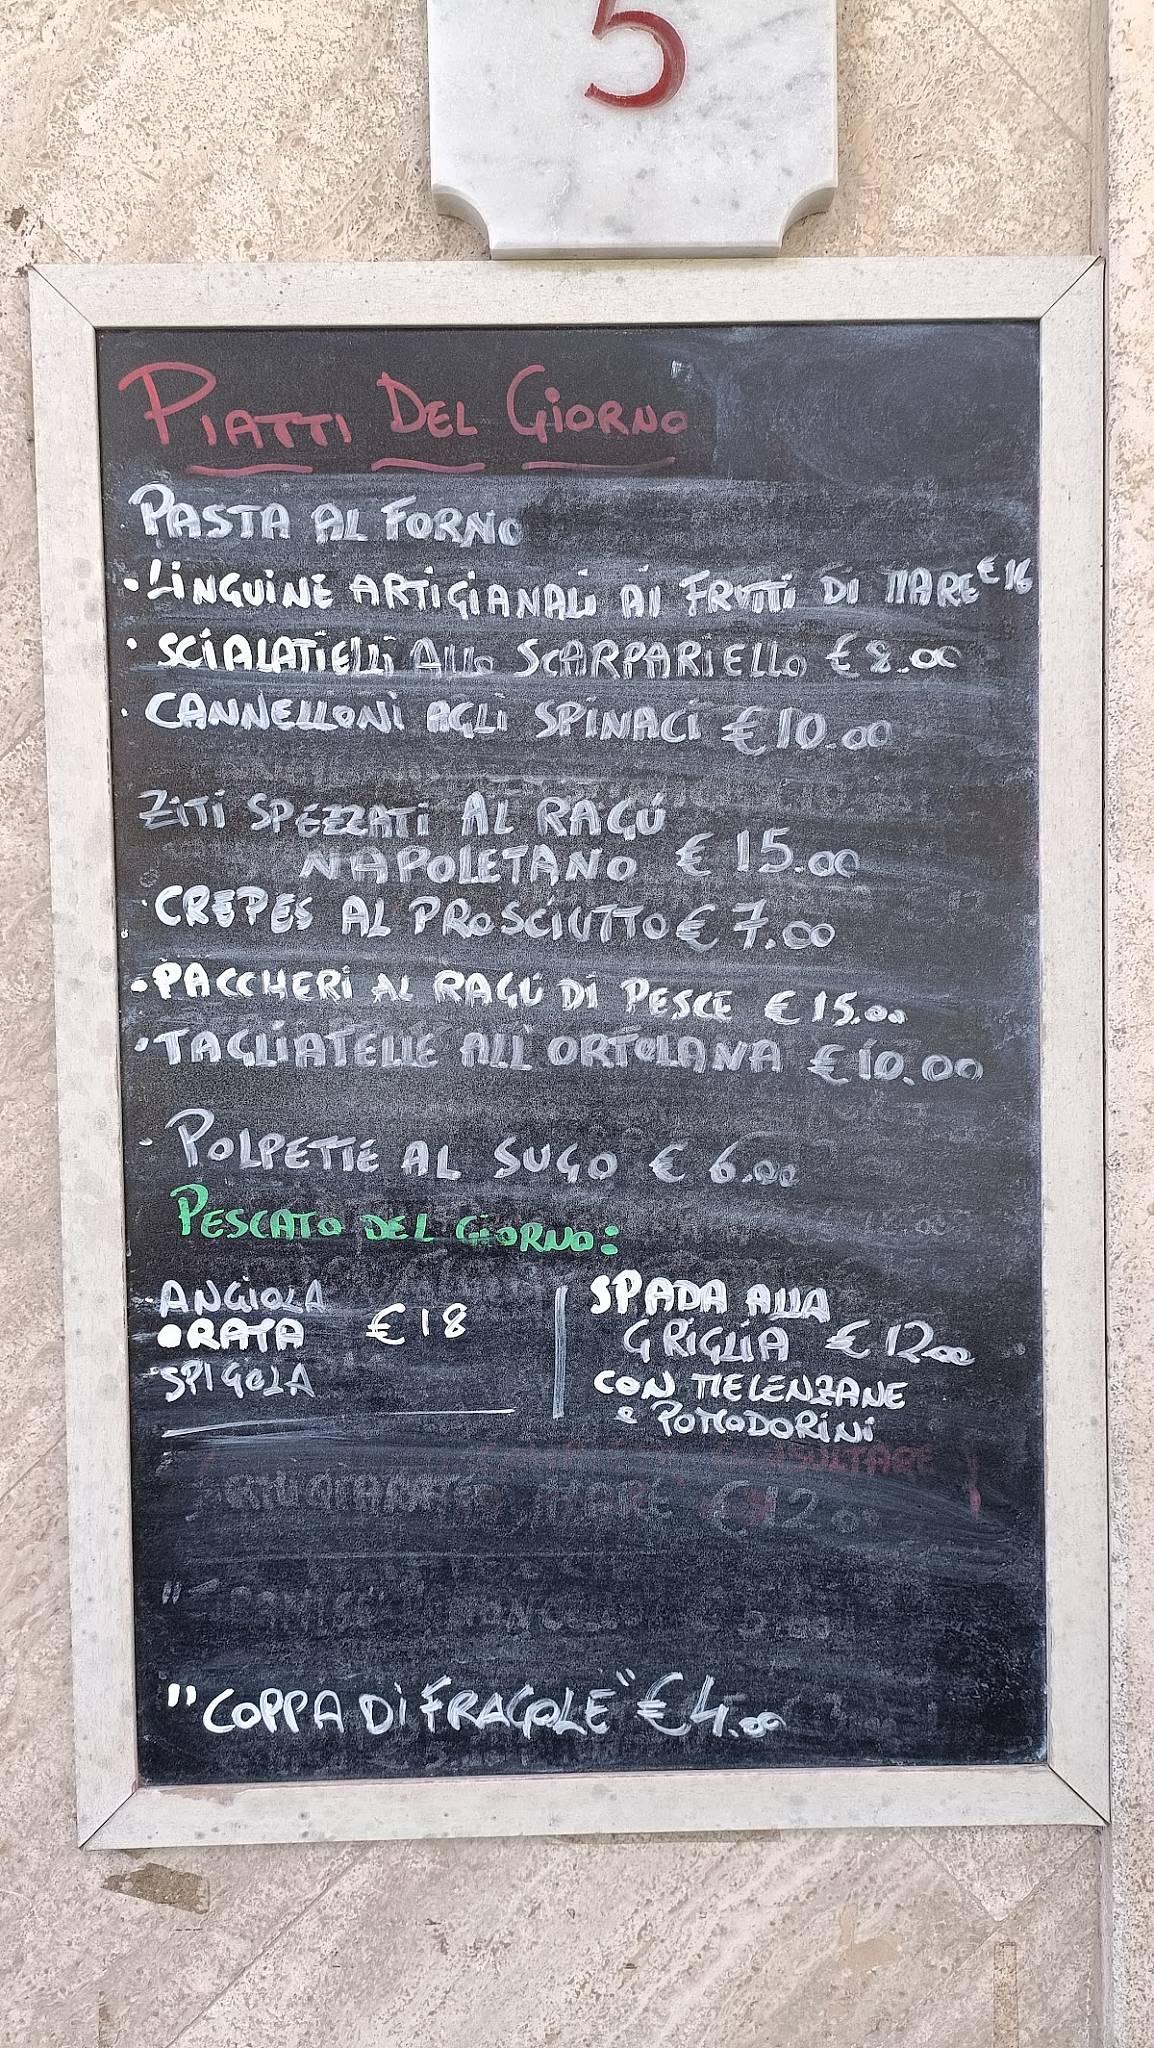 5
PIATTI DEL GIORNO
PASTA AL FORNO
• LINGUINE ARTIGIANALI AI FRUTTI DI MARE € 16
• SCIALATIELLI ALLO SCARPARIELLO € 8.00
• CANNELLONI AGLI SPINACI € 10.00
ZITI SPEZZATI AL RAGÚ
NAPOLETANO € 15.00
• CREPES AL PROSCIUTTO € 7.00
• PACCHERI AL RAGÚ DI PESCE € 15.00
• TAGLIATELLE ALL'ORTOLANA € 10.00
POLPETTE AL SUGO € 6.00
PESCATO DEL GIORNO:
ANGIOLA
ORATA € 18
SPIGOLA
SPADA ALLA
GRIGLIA € 12.00
CON MELENZANE
E POMODORINI
"COPPA DI FRAGOLE" € 4.00